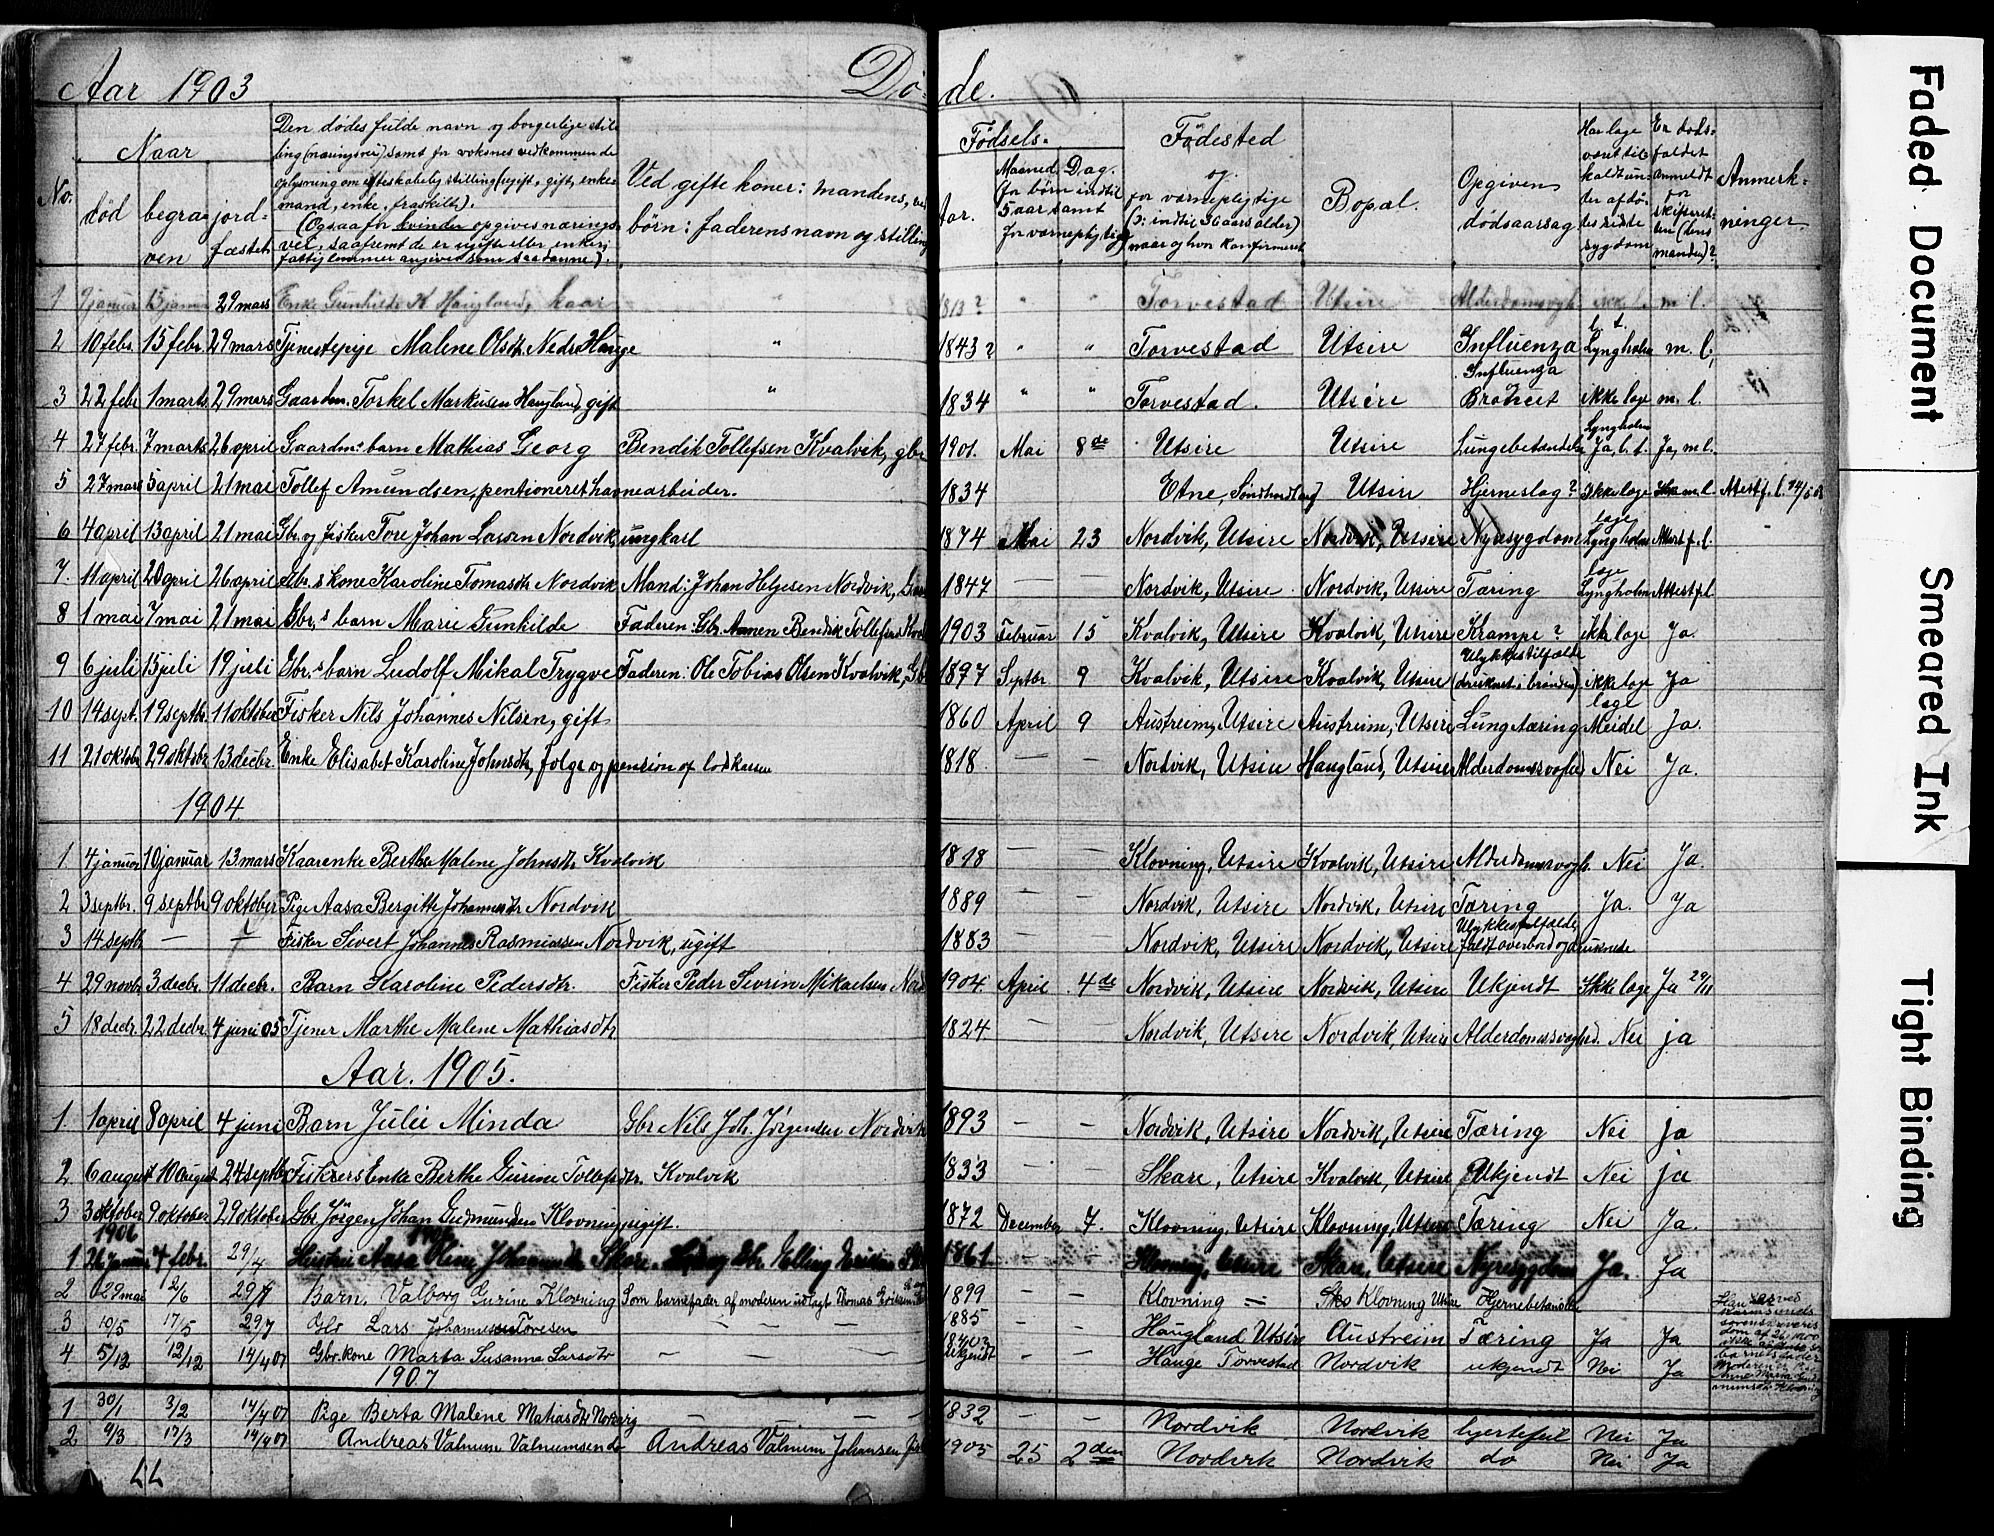 Aar 1903 Døde.
No. Naar død begraven jordfæstet
Den dødes fulde navn og borgerlige stilling (næringsvei) samt for voksnes vedkommende oplysning om egteskabelig stilling (ugift, gift, enkemand, enke, fraskilt). (Ogsaa for kvinder opgives næringsvei, saafremt de er ugifte eller enker; fattiglemmer angives som saadanne).
Ved gifte koner: mandens, ved børn: faderens navn og stilling
Fødsels- Aar. Maaned Dag. (for børn indtil 5 aar samt for værnepligtige)
Fødested og for værnepligtige (ɔ: indtil aars alder) naar og hvor konfirmeret
Bopæl.
Opgiven dødsaarsag
Har læge været tilkaldt under afdødes sidste sygdom
Er dødsfaldet anmeldt for skifteretten (lensmanden)?
Anmerkninger.
1 9 januar 15 januar 29 mars Enke Gunhilde K Haugland, kaar " 1813? " " Torvestad Utsire Alderdomssvagh. m l.
2 10 febr. 15 febr. 29 mars Tjenestepige Malene Olsdtr. Nedre Hauge " 1843? " " Torvestad Utsire Influenza Lyngholm m. l.
3 22 febr. 1 marts 29 mars Gaardm. Torkel Markusen Haugland, gift " 1834 " " Torvestad. Utsire Influenza ikke læge m. l.
4 27 febr. 7 marts 26 april Gaardm.s barn Mathias Georg Bendik Tollefsen Kvalvik, gbr 1901. Mai 8de Utsire Utsire Lungebetændelse Lyngholm Ja, Ja, m l.
5 27 mars 5 april 21 mai Tollef Amundsen, pentioneret havnearbeider. 1834 Etne, Søndhordland Utsire Hjerneslag? Ikke læge m l. Attest f. l.
6 4 april 13 april 21 mai Gbr. og fisker Tore Johan Larsen Nordvik, ungkarl 1874 Mai 23 Nordvik, Utsire Nordvik, Utsire Nyresygdom læge Lyngholm Attest f. l.
7. 11 april 20 april 26 april Gbr.s kone Karoline Tomasdtr Nordvik Mand: Johan Helgesen Nordvik, 1847 — — Nordvik, Utsire. Nordvik, Utsire Tæring læge Lyngholm Attest f. l
8 1 mai 7 mai 21 mai Gbr.s barn Marie Gunhilde Faderen: Gbr. Bendik Tollefsen 1903 Februar 15 Kvalvik, Utsire Kvalvik, Utsire Krampe? ikke læge Ja.
9 6 juli 15 juli 19 juli Gbr.s barn Ludolf Mikal Trygve Faderen: Ole Tobias Olsen Kvalvik, Gb 1897 Septbr 9 Kvalvik, Utsire Kvalvik, Utsire Ulykkestilfælde (druknet i brønden) ikke læge Ja
10 14 sept. 19 septbr. 11 oktober Fisker Nils Johannes Nilsen, gift 1860 April 9 Austreim, Utsire Austreim, Utsire Lungetæring læge Meidel Ja.
11 21 oktbr 29 oktbr. 13 decbr. Enke Elisabet Karoline Johnsdtr, folge og pension af lodskassen 1818. — — Nordvik, Utsire Haugland, Utsire Alderdomssvaghed Nei Ja.
1904.
1 4 januar 10 januar 13 mars Kaarenke Berthe Malene Johnsdtr Kvalvik 1818 — — Klovning, Utsire Kvalvik, Utsire Alderdomssvagh. Nei Ja.
2 3 septbr. 9 septbr 9 oktober Pige Aasa Bergitte Johannesdtr Nordvik 1889 — — Nordvik, Utsire Nordvik, Utsire Tæring Ja. Ja
3 14 septb — Fisker Sivert Johannes Rasmussen Nordvik, ugift 1883 — — Nordvik, Utsire Nordvik, Utsire Ulykkestilfælde faldt overbord og druknede
4 29 novbr. 3 decbr. 11 decbr. Barn Karoline Pedersdtr. Fisker Peder Sevrin Mikaelsen Nord 1904. April 4de Nordvik, Utsire Nordvik, Utsire Ukjendt Ikke læge Ja 29/11
5 18 decbr. 22 decbr. 4 juni 05 Tjener Marthe Malene Mathiasdtr 1824. — — Nordvik, Utsire Nordvik, Utsire Alderdomssvaghed. Nei ja
Aar. 1905.
1. 1 april 8 april 4 juni Barn Julie Minda Gbr Nils Joh. Jørgensen Nordvik 1893 — — Nordvik, Utsire Nordvik, Utsire Tæring Nei ja
2 6 august 10 august 24 septbr Fiskers Enke Berthe Gurine Tollefsdtr. Kvalvik 1833 — — Skare, Utsire Kvalvik, Utsire Ukjendt Nei ja
3 3 oktober 9 oktober 29 oktober Gbr. Jørgen Johan Gudmundsen Klovning, ugift. 1872 December 7. Klovning, Utsire Klovning, Utsire Tæring Nei Ja.
1906
1 26 januar 4 febr. 29/4 Hustru Aasa Oline Johannesdtr Skare Gbr. Elling 1861 — — Klovning, Utsire Skare, Utsire Nyresygdom Ja. Ja
2 29 mai 2/6 29/7 Barn, Valborg Gurine Klovning Som barnefader af moderen udlagt Thomas 1899 — — Klovning Klovning Utsire Hjernebetændelse
3 10/5 17/5 29/7 Lars Johannessen Toresen — — — 1885 — — Haugland Utsire Austreim Tæring Ja Ja
4 5/12 12/12 14/4 07 Gbr. kone Marta Susanna Larsdtr — — — — ukjendt — — Hauge Torvestad Nordvik ukjendt Nei Ja
1907
1 30/1 3/2 14/4 07 Pige Berta Malene Matiasdtr — — — — 1832 — — Nordvik Nordvik hjertefeil Nei Ja
2 9/3 17/3 14/4 07 Andreas Valnum Valnumsen do Andreas Valnum Johansen 1905 25 2den Nordvik Nordvik do Nei Ja
Faded Document
Smeared Ink
Tight Binding